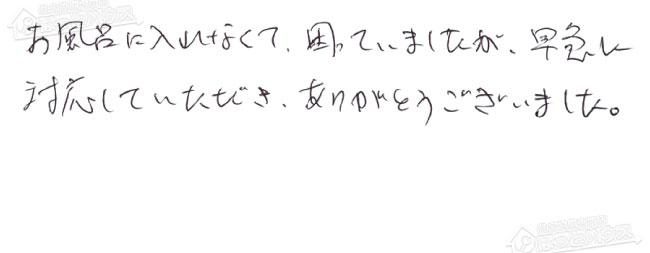 お風呂に入れなくて、困っていましたが、早急に
対応していただき、ありがとうございました。